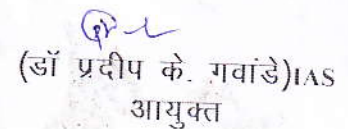 (डॉ प्रदीप के. गवांडे)IAS
आयुक्त